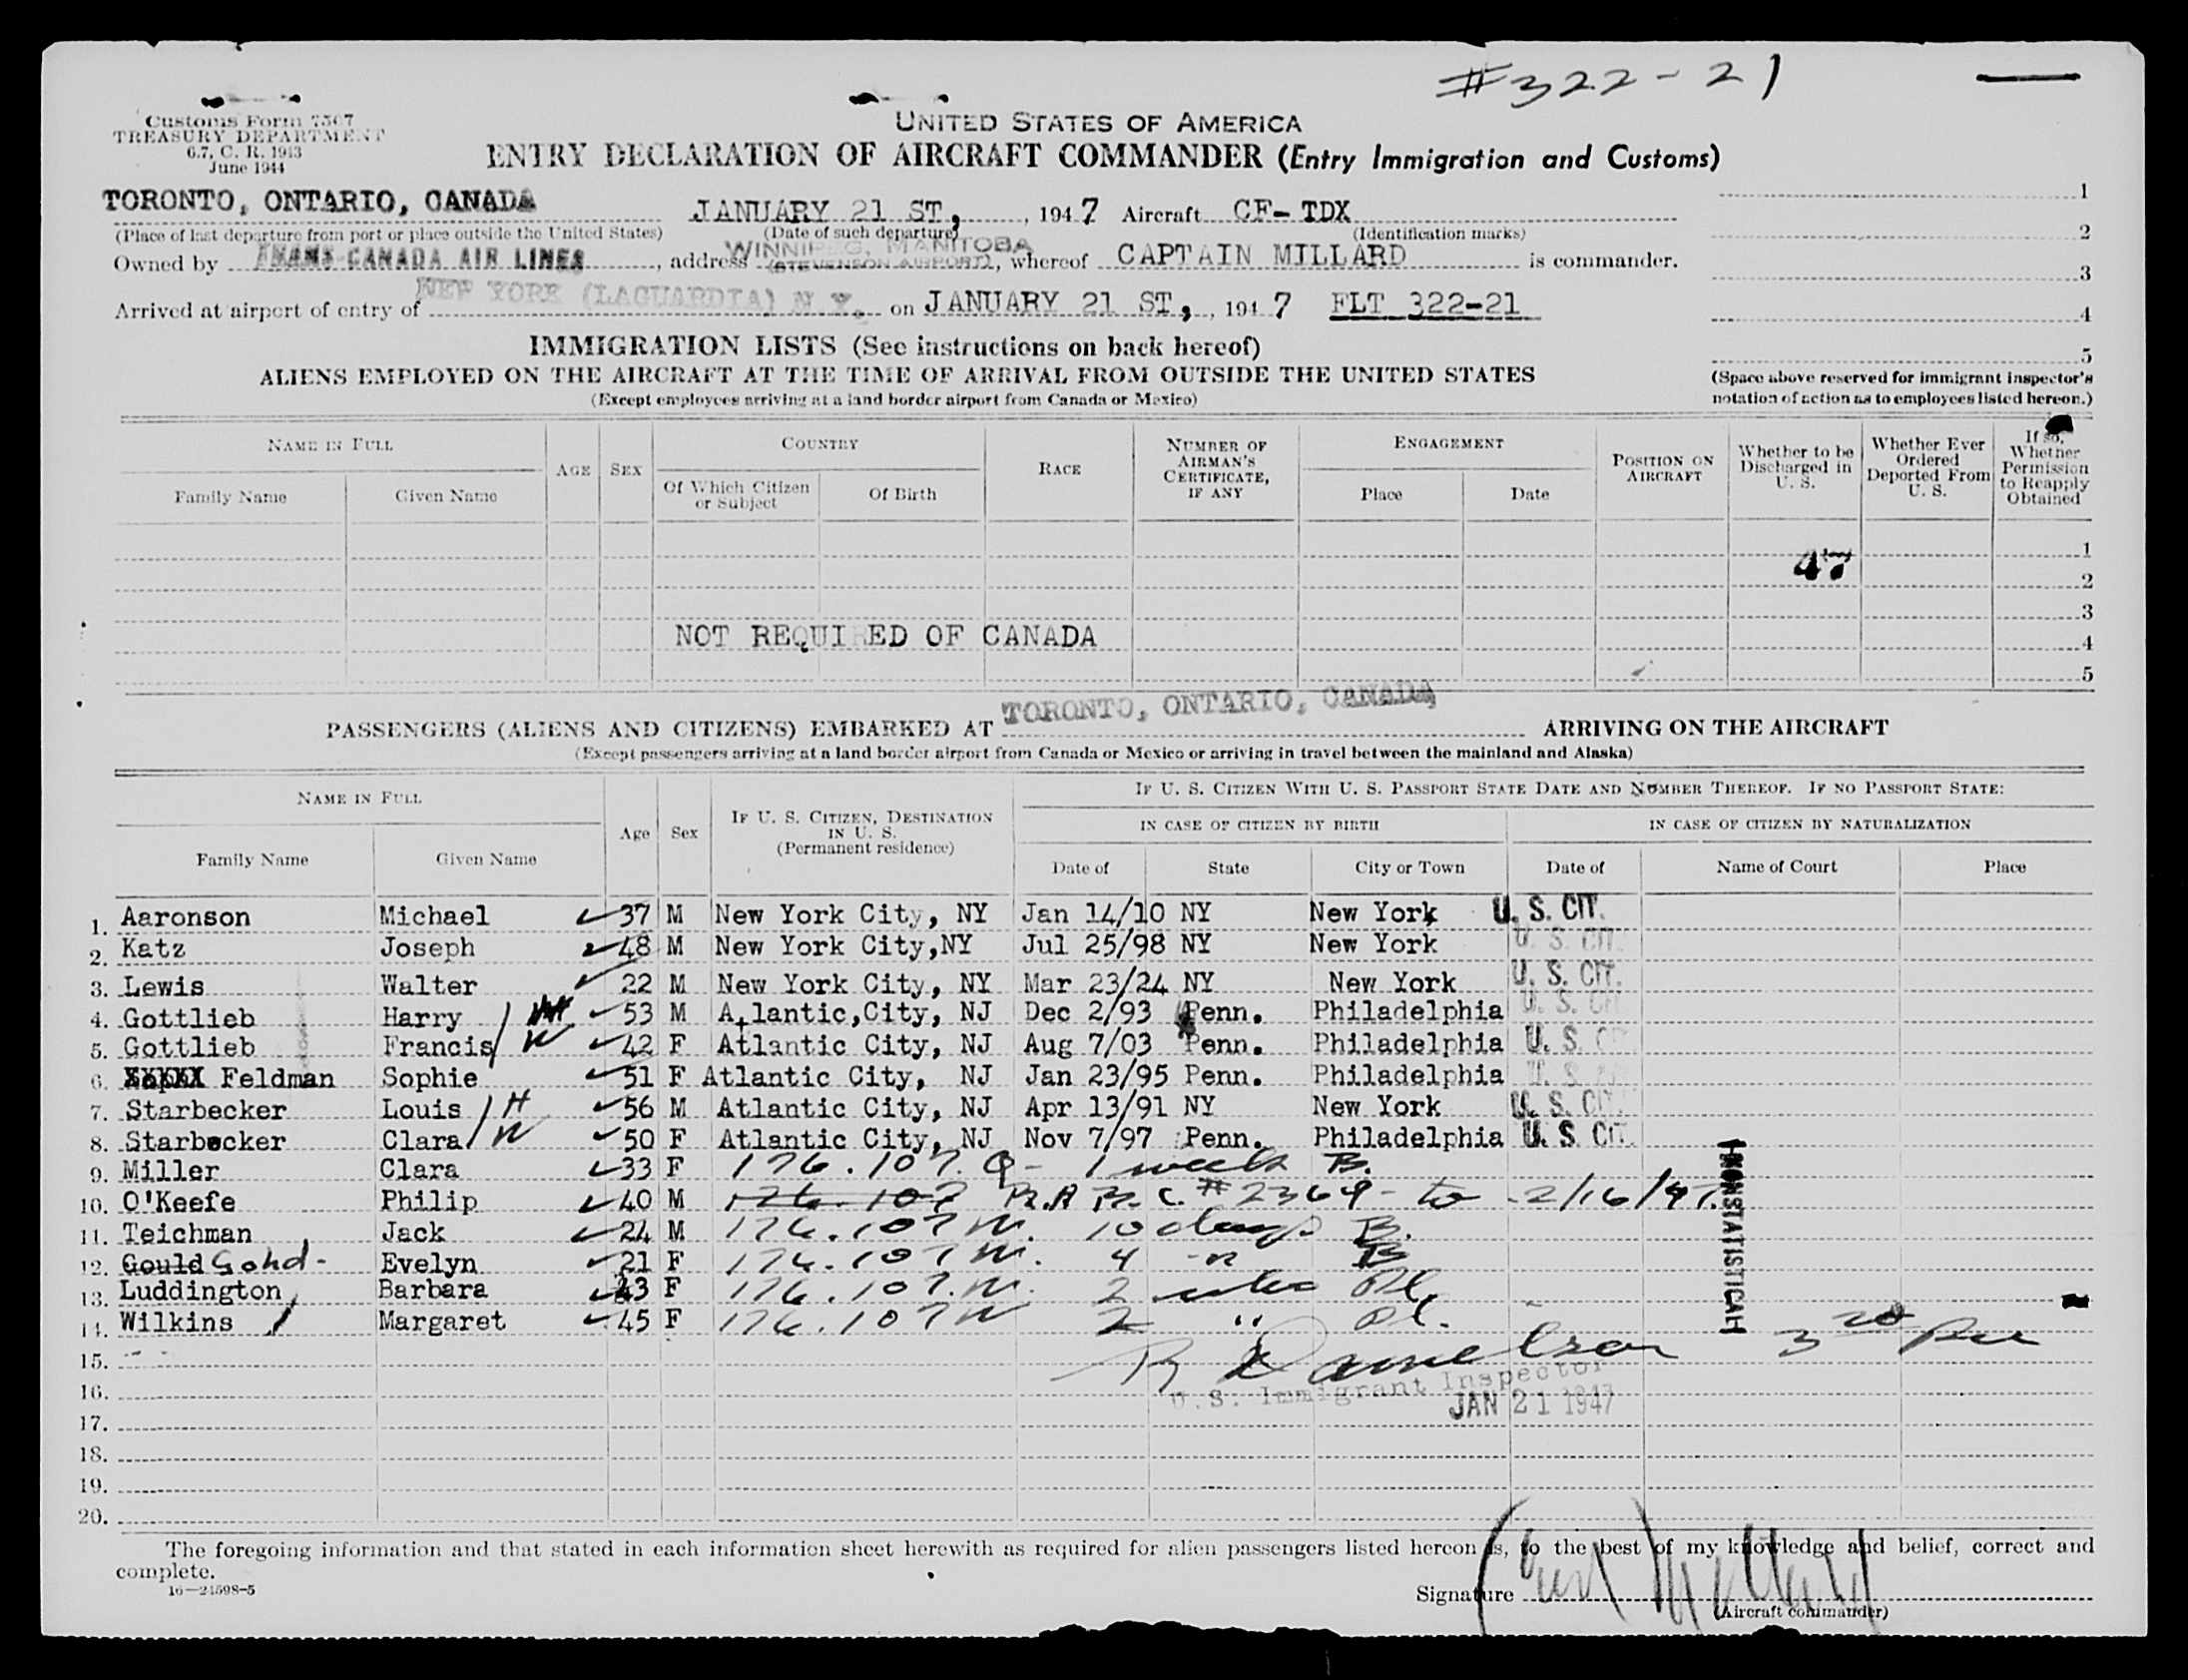 #322-21
Customs Form 7507
TREASURY DEPARTMENT
6.7, C. R. 1943
June 1944
UNITED STATES OF AMERICA
ENTRY DECLARATION OF AIRCRAFT COMMANDER (Entry Immigration and Customs)
TORONTO, ONTARIO, CANADA JANUARY 21 ST, , 1947 Aircraft CF-TDX 1
(Place of last departure from port or place outside the United States) (Date of such departure) (Identification marks) 2
WINNIPEG, MANITOBA
Owned by TRANS CANADA AIR LINES , address (STEVENSON AIRPORT), whereof CAPTAIN MILLARD is commander. 3
Arrived at airport of entry of NEW YORK (LAGUARDIA) N Y. on JANUARY 21 ST, , 1947 FLT 322-21 4
IMMIGRATION LISTS (See instructions on back hereof) 5
ALIENS EMPLOYED ON THE AIRCRAFT AT THE TIME OF ARRIVAL FROM OUTSIDE THE UNITED STATES (Space above reserved for immigrant inspector's
(Except employees arriving at a land border airport from Canada or Mexico) notation of action as to employees listed hereon.)
NAME IN FULL AGE SEX COUNTRY RACE NUMBER OF AIRMAN'S CERTIFICATE, IF ANY ENGAGEMENT POSITION ON AIRCRAFT Whether to be Discharged in U. S. Whether Ever Ordered Deported From U. S. If so, Whether Permission to Reapply Obtained
Family Name Given Name Of Which Citizen or Subject Of Birth Place Date
1
47
2
3
NOT REQUIRED OF CANADA 4
5
PASSENGERS (ALIENS AND CITIZENS) EMBARKED AT TORONTO, ONTARIO, CANADA ARRIVING ON THE AIRCRAFT
(Except passengers arriving at a land border airport from Canada or Mexico or arriving in travel between the mainland and Alaska)
NAME IN FULL Age Sex IF U. S. CITIZEN, DESTINATION IN U. S. (Permanent residence) IF U. S. CITIZEN WITH U. S. PASSPORT STATE DATE AND NUMBER THEREOF. IF NO PASSPORT STATE:
IN CASE OF CITIZEN BY BIRTH IN CASE OF CITIZEN BY NATURALIZATION
Family Name Given Name Date of State City or Town Date of Name of Court Place
1. Aaronson Michael 37 M New York City, NY Jan 14/10 NY New York U. S. CIT.
2. Katz Joseph 48 M New York City,NY Jul 25/98 NY New York U. S. CIT.
3. Lewis Walter 22 M New York City, NY Mar 23/24 NY New York U. S. CIT.
4. Gottlieb Harry 53 M Atlantic,City, NJ Dec 2/93 Penn. Philadelphia U. S. CIT
5. Gottlieb Francis W 42 F Atlantic City, NJ Aug 7/03 Penn. Philadelphia U. S. CIT
6. Feldman Sophie 51 F Atlantic City, NJ Jan 23/95 Penn. Philadelphia U. S. CIT
7. Starbecker Louis H 56 M Atlantic City, NJ Apr 13/91 NY New York U. S. CIT.
8. Starbecker Clara W 50 F Atlantic City, NJ Nov 7/97 Penn. Philadelphia U. S. CIT.
9. Miller Clara 33 F 176.107. 1 week B.
10. O'Keefe Philip 40 M 176.107 # 2369 - to 2/16/47.
11. Teichman Jack 24 M 176.107 W. 10 days B.
12. Gould Gohd- Evelyn 21 F 176.107 W. 4 - B
13. Luddington Barbara 43 F 176.107.W. 2 wks Pl.
14. Wilkins Margaret 45 F 176.107 W 2 " Pl.
NONSTATISTICAL
15. R Danielson
16. U.S. Immigrant Inspector
JAN 21 1947
17.
18.
19.
20.
The foregoing information and that stated in each information sheet herewith as required for alien passengers listed hereon is, to the best of my knowledge and belief, correct and
complete.
16—24598-5
Signature
(Aircraft commander)